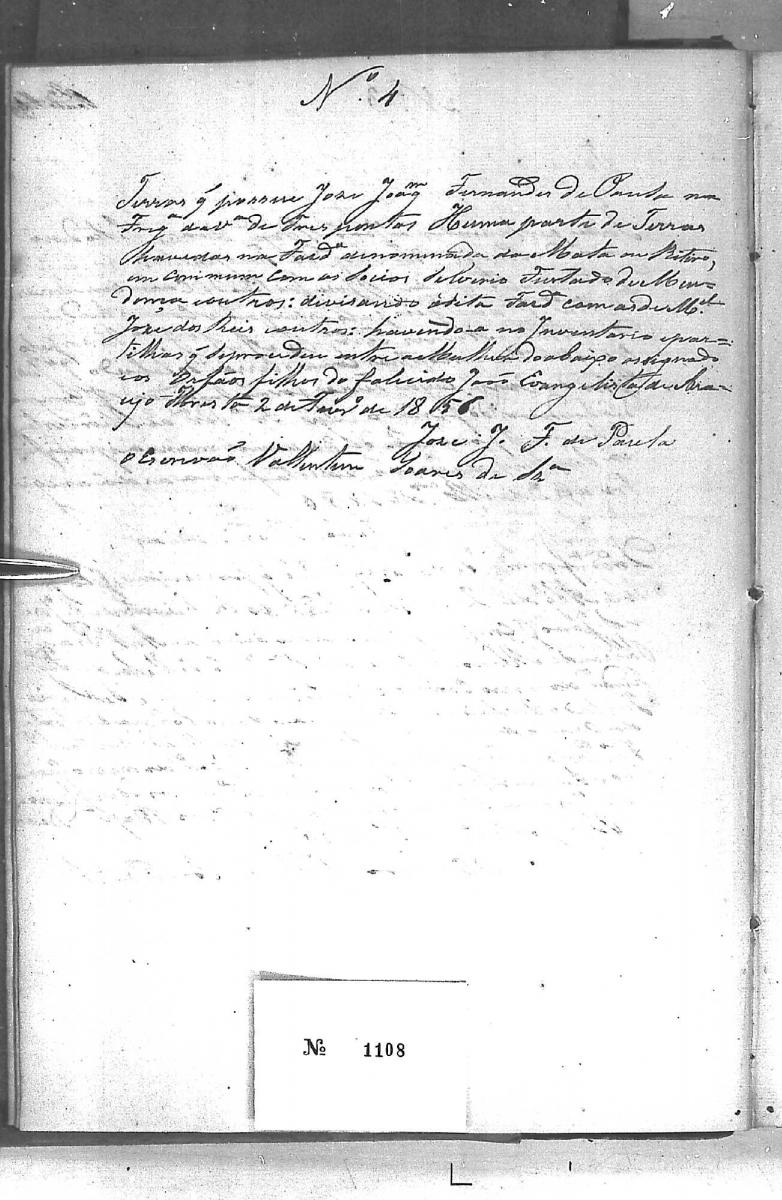 N.º 4
Terras q̃ possue Joze Joaqᵐ Fernandes de Paula na
Fregª da Vª de Tres pontas Huma parte de Terras
havidas na Fazdª denominada da Mata ou Retiro,
em commum com os Socios Silverio Furtado de Men-
donça e outros: divisando a dita Fazdª com as de Mel
Joze dos Reis e outros: havendo-a no Inventario e par-
tilhas q̃ se procedeu entre a Mulher do abaixo assignado
e os Orfãos filhos do falecido João Evangelista de Ara-
ujo 2 de Fevrº de 1856
Joze J. F. de Paula
o Escrivaõ Vallentim Soares de
Nº 1108